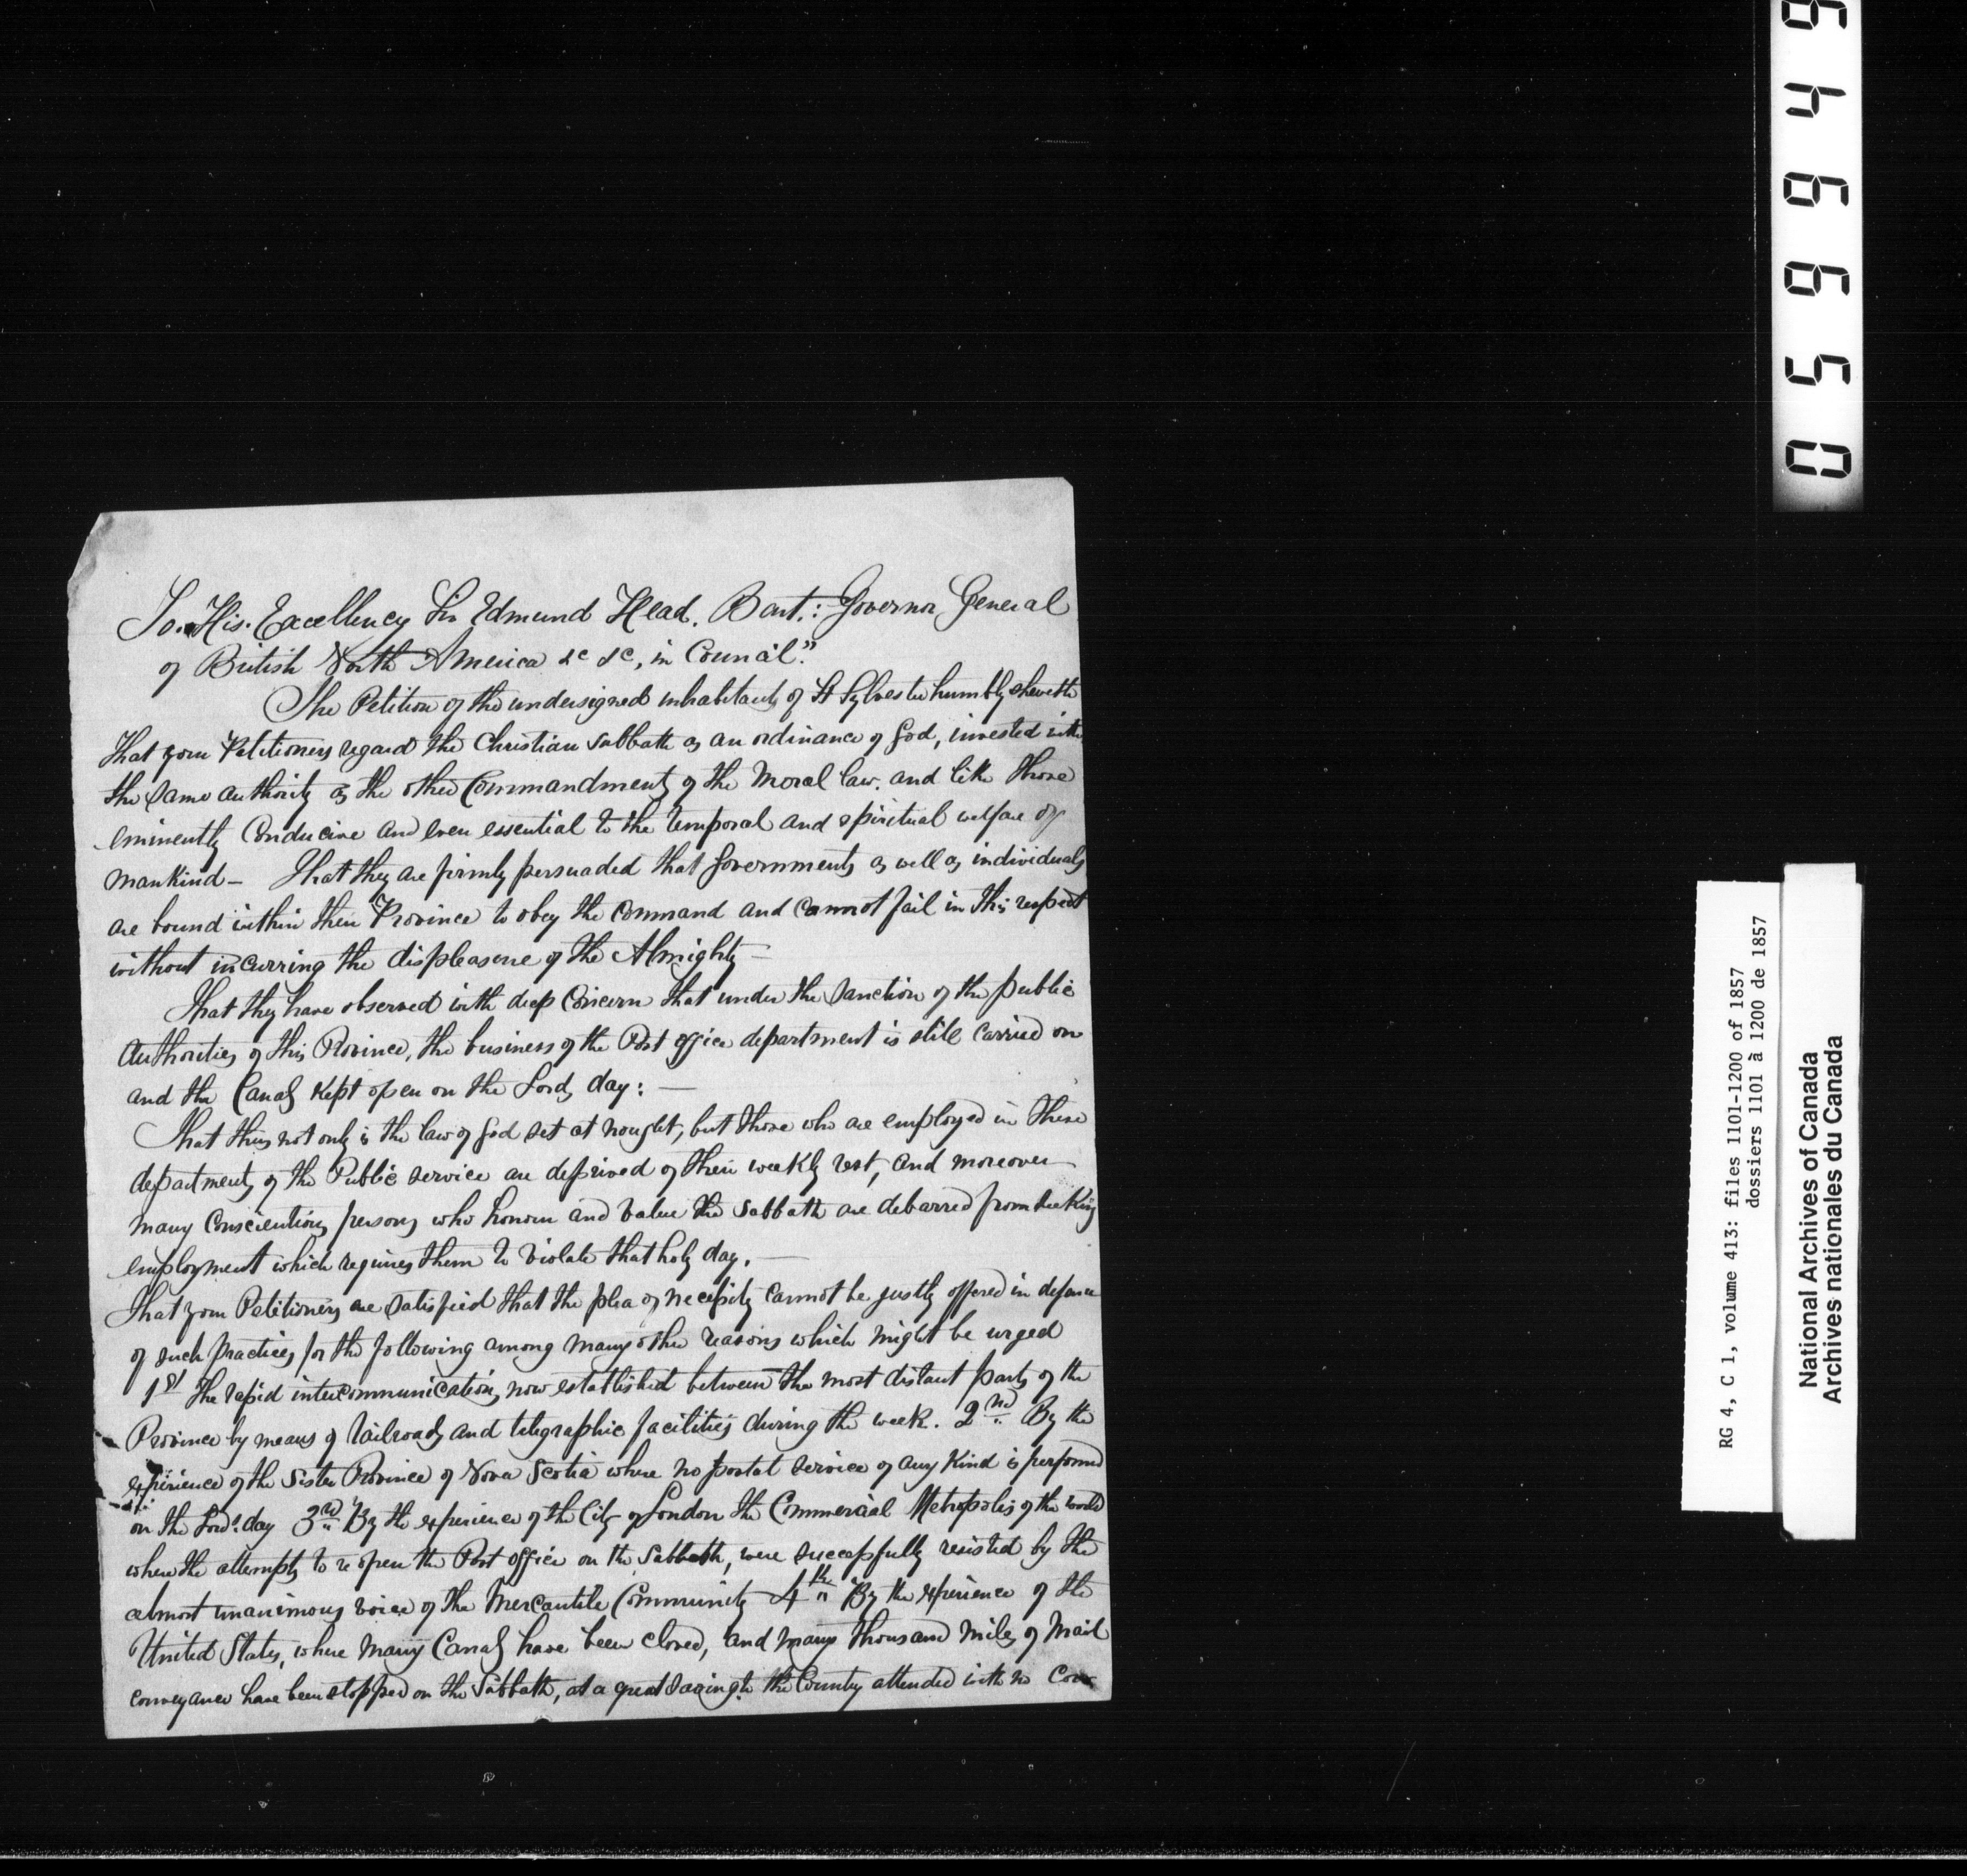 To. His. Excellency Sir Edmund Head. Bart.: Governor General
of British North America &c &c, in Council."
The Petition of the undersigned inhabitants of St Sylvester humbly sheweth
That your Petitioners regard the Christian Sabbath as an ordinance of God, invested with
the same authority as the other Commandments of the Moral law. and like those
eminently Conducive and even essential to the temporal and spiritual welfare of
mankind — That they are firmly persuaded that Governments as well as individuals
are bound within their Province to obey the Command and cannot fail in this respect
without incurring the displeasure of the Almighty —
That they have observed with deep Concern that under the Sanction of the public
Authorities of this Province, the business of the Post office department is still carried on
and the Canals Kept open on the Lords day: —
That thus not only is the law of God set at nought, but those who are employed in these
departments of the Public service are deprived of their weekly rest, and moreover
many Conscientious persons who honour and value the Sabbath are debarred from seeking
employment which requires them to violate that holy day. —
That your Petitioners are satisfied that the plea of necessity cannot be justly offered in defence
of such practices for the following among many other reasons which might be urged
1st The rapid intercommunication now established between the most distant parts of the
Province by means of Railroads and telegraphic facilities during the week. 2nd By the
experience of the Sister Province of Nova Scotia where no postal service of any Kind is performed
on the Lord's day 3rd By the experience of the City of London the Commercial Metropolis of the world
where the attempts to re open the Post office on the Sabbath, were successfully resisted by the
almost unanimous voice of the Mercantile Community 4th By the experience of the
United States, where many Canals have been closed, and many thousand miles of Mail
conveyance have been stopped on the Sabbath, at a great saving to the Country attended with no
0 5 6 6 4 9
RG 4, C 1, volume 413: files 1101-1200 of 1857
dossiers 1101 à 1200 de 1857
National Archives of Canada
Archives nationales du Canada